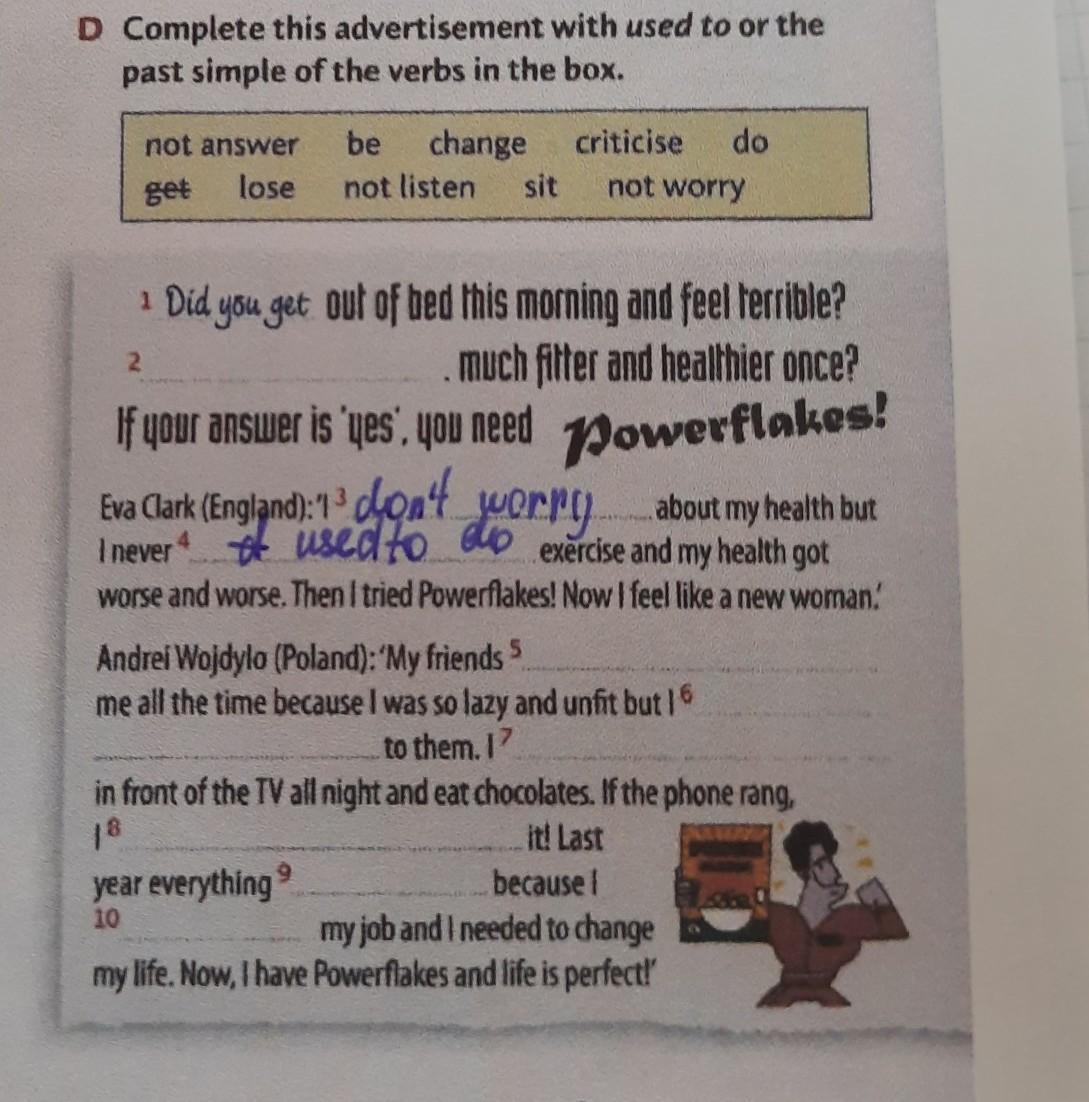 D Complete this advertisement with used to or the
past simple of the verbs in the box.
not answer be change criticise do
get lose not listen sit not worry
1 Did you get out of bed this morning and feel terrible?
2 . much fitter and healthier once?
If your answer is 'yes', you need Powerflakes!
Eva Clark (England): 'I 3 don't worry about my health but
I never 4 used to do exercise and my health got
worse and worse. Then I tried Powerflakes! Now I feel like a new woman.'
Andrei Wojdylo (Poland): 'My friends 5
me all the time because I was so lazy and unfit but I 6
to them. I 7
in front of the TV all night and eat chocolates. If the phone rang,
I 8 it! Last
year everything 9 because I
10 my job and I needed to change
my life. Now, I have Powerflakes and life is perfect!'